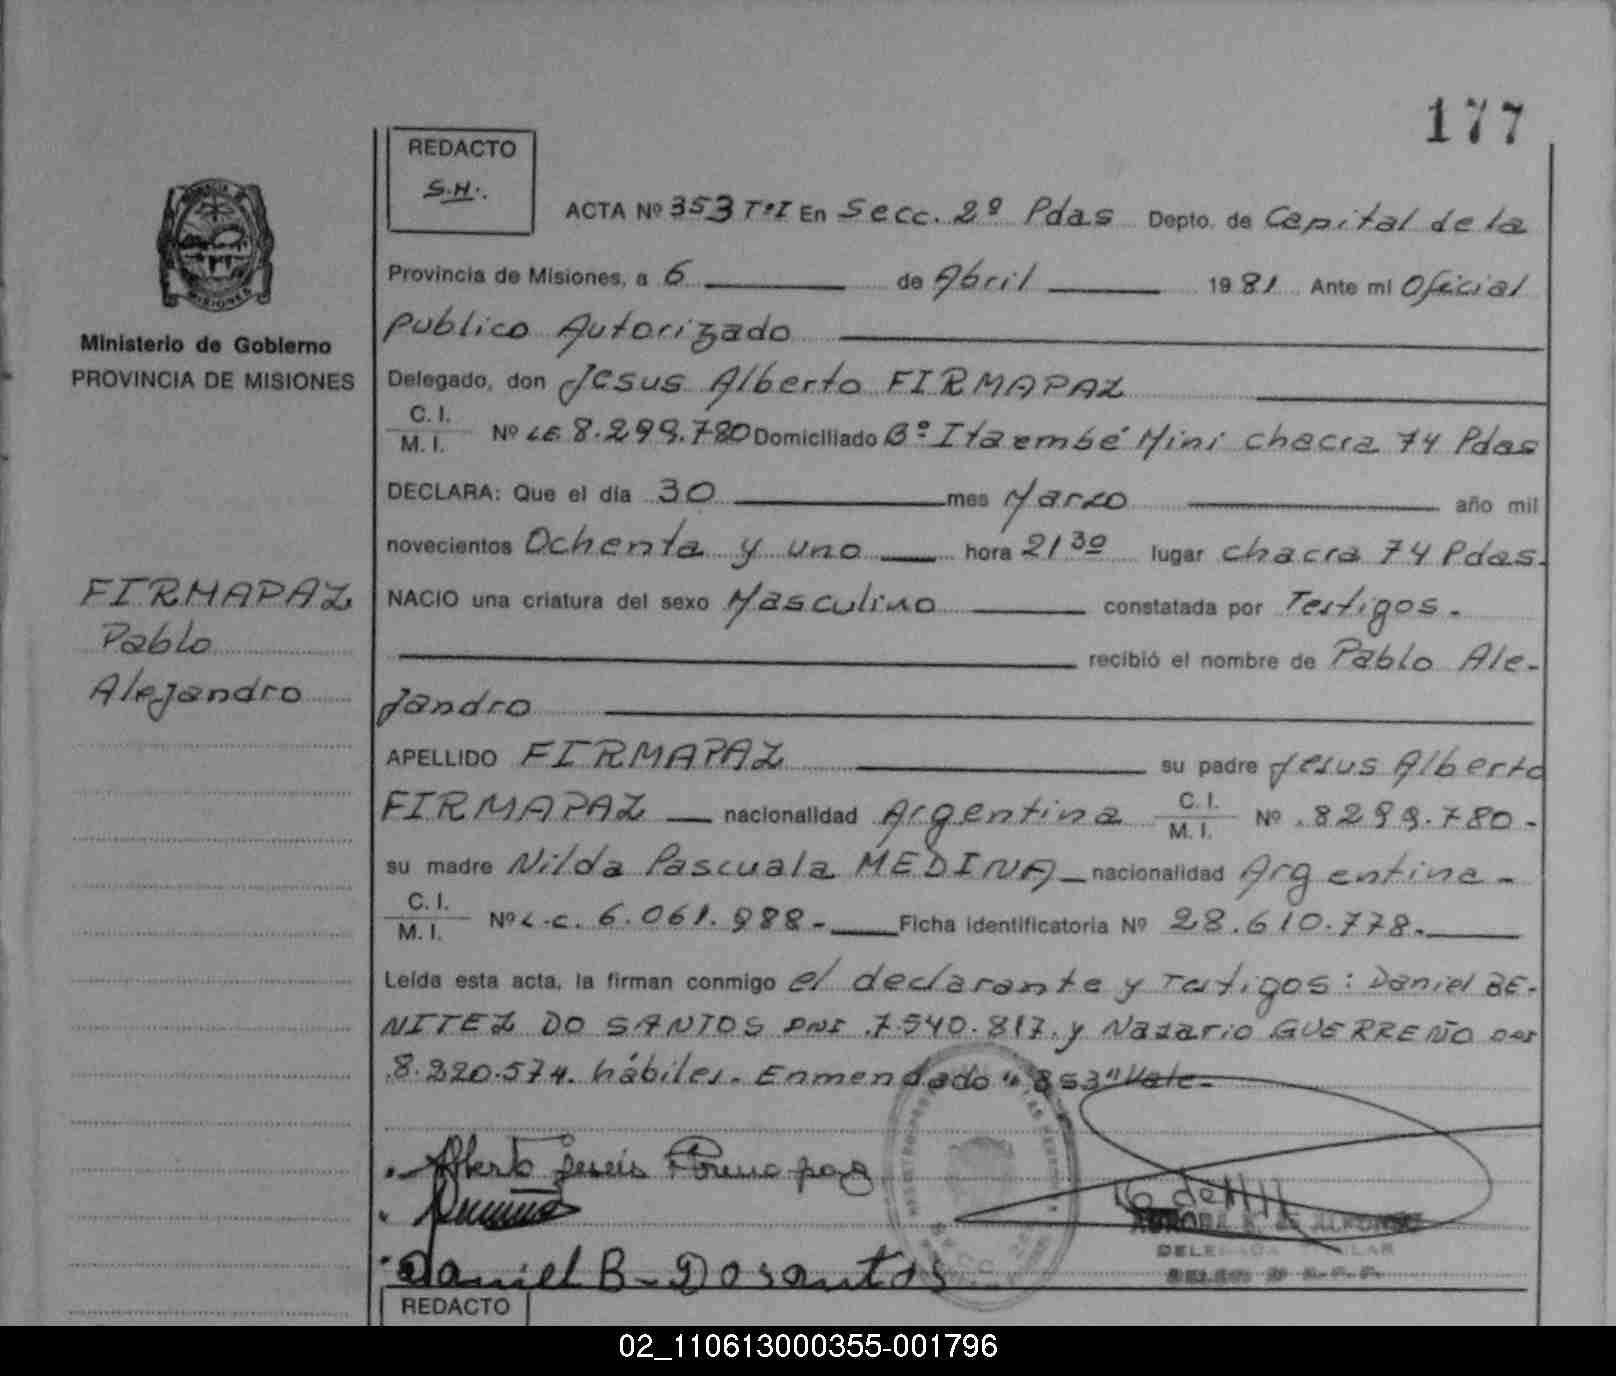 177
REDACTO
S.H.
ACTA Nº 353 TºI En Secc. 2º Pdas Depto. de Capital de la
Provincia de Misiones, a 6 de Abril 1981 Ante mi Oficial
publico Autorizado
Ministerio de Gobierno
PROVINCIA DE MISIONES
Delegado, don Jesus Alberto FIRMAPAZ
C. I.
M. I. Nº LE 8.299.780 Domiciliado Bº Itaembé Mini chacra 74 Pdas
DECLARA: Que el día 30 mes Marzo año mil
novecientos Ochenta y uno hora 21 30 lugar chacra 74 Pdas.
FIRMAPAZ
Pablo
Alejandro
NACIO una criatura del sexo Masculino constatada por Testigos.
recibió el nombre de Pablo Ale-
jandro
APELLIDO FIRMAPAZ su padre Jesus Alberto
FIRMAPAZ nacionalidad Argentina C. I. M. I. Nº 8299.780-
su madre Nilda Pascuala MEDINA nacionalidad Argentina-
C. I.
M. I. Nº L.C. 6.061.988.- Ficha identificatoria Nº 28.610.778.
Leída esta acta, la firman conmigo el declarante y Testigos: Daniel BE-
NITEZ DO SANTOS DNI 7.540.817. y Nazario GUERREÑO DNI
8.220.574. hábiles. Enmendado "353" Vale-
Alberto Jesús Firmapaz
Daniel B- Dosantos
REDACTO
02_110613000355-001796